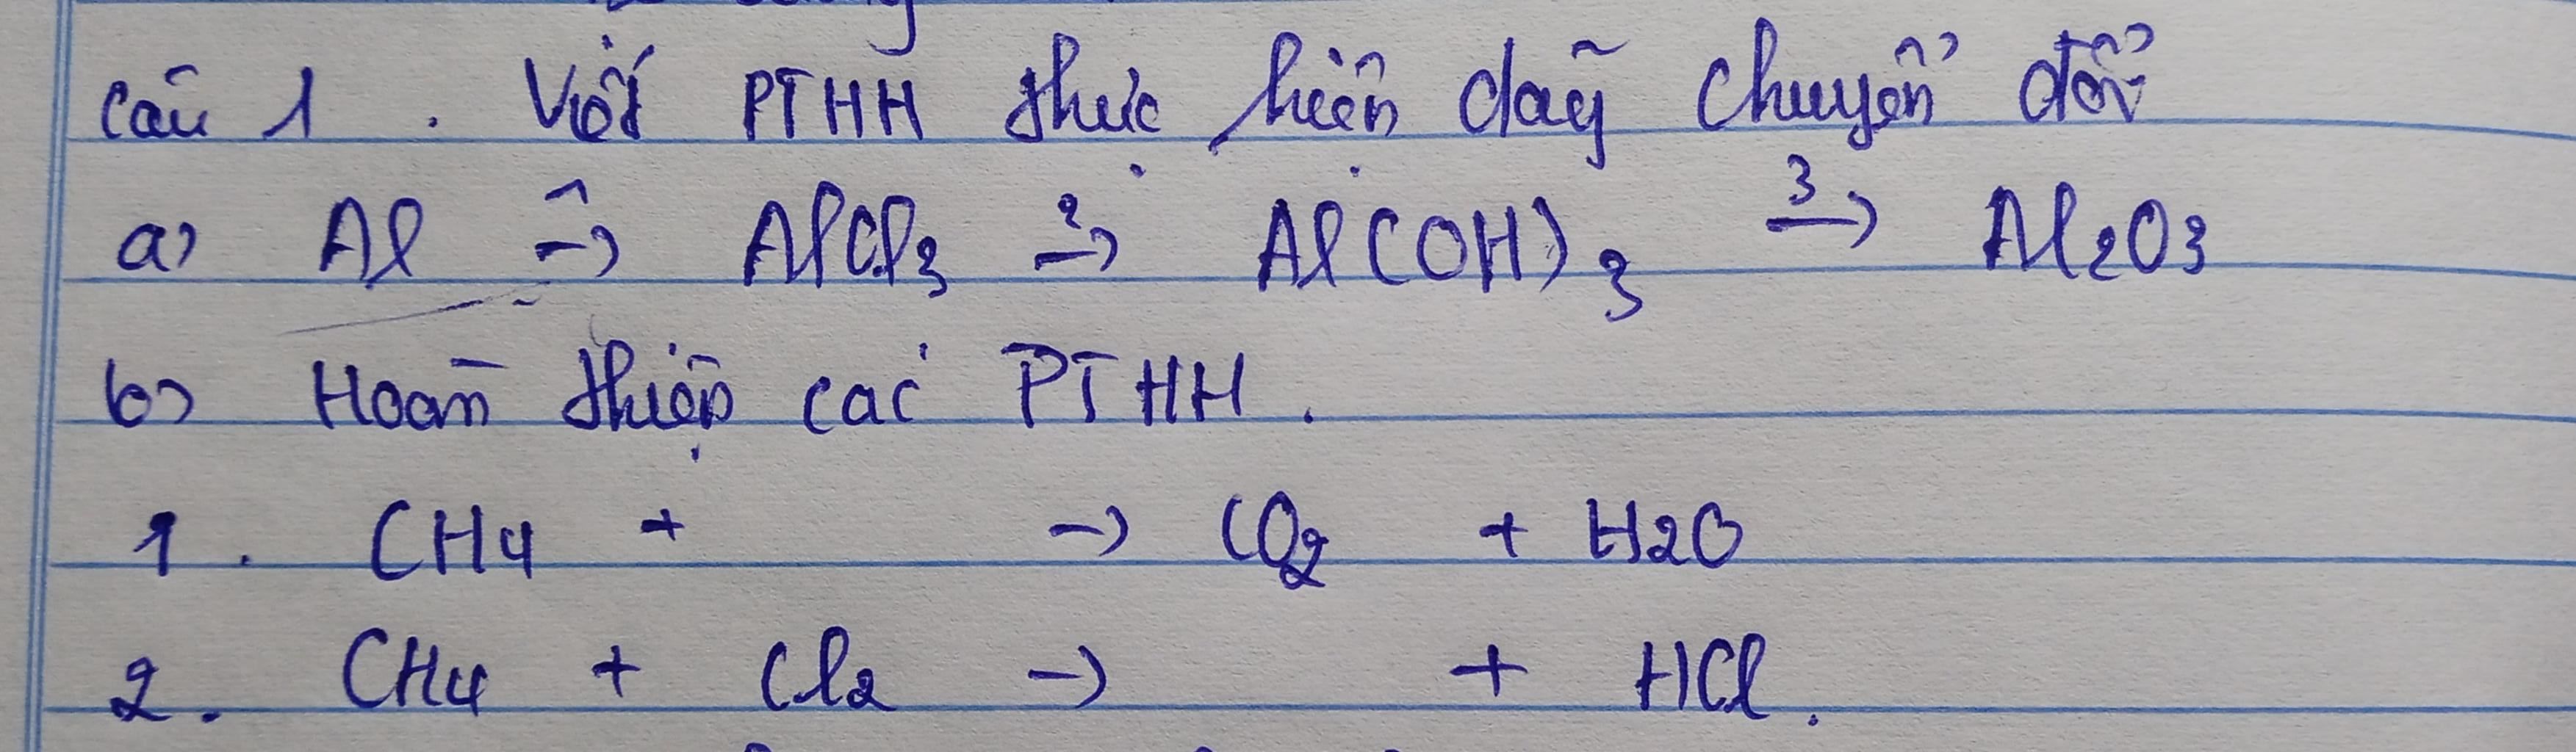 Câu 1. Viết PTHH thực hiện dãy chuyển đổi
a) Al 1→ AlCl3 2→ Al(OH)3 3→ Al2O3
b) Hoàn thiện các PTHH.
1. CH4 + → CO2 + H2O
2. CH4 + Cl2 → + HCl.